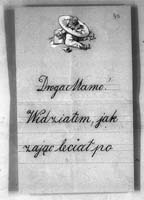 Droga Mamo!
Widziałem, jak
zając leciał po